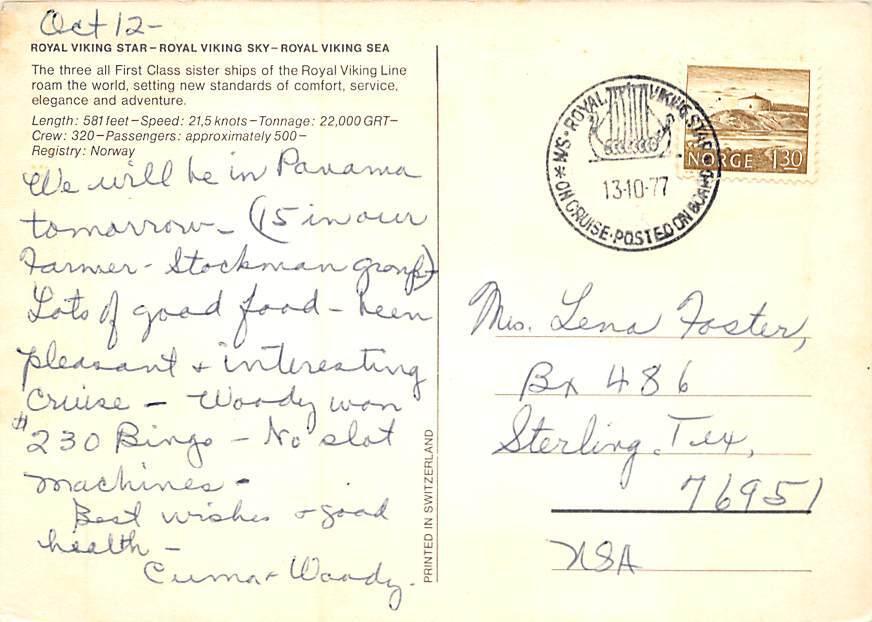 Oct 12-
ROYAL VIKING STAR – ROYAL VIKING SKY – ROYAL VIKING SEA
The three all First Class sister ships of the Royal Viking Line
roam the world, setting new standards of comfort, service,
elegance and adventure.
Length: 581 feet – Speed: 21,5 knots – Tonnage: 22,000 GRT –
Crew: 320 – Passengers: approximately 500 –
Registry: Norway
We will be in Panama
tomorrow - (15 in our
Farmer - Stockman group)
Lots of good food - been
pleasant + interesting
Cruise - Woody won
$230 Bingo - No slot
machines -
Best wishes + good
health -
Cuma + Woody.
PRINTED IN SWITZERLAND
M/S · ROYAL VIKING STAR
13-10-77
* ON CRUISE · POSTED ON BOARD
NORGE 130
Mrs. Lena Foster,
Bx 486
Sterling, Tex,
76951
USA